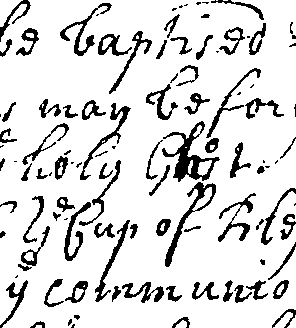 be baptised
may be for
holy Ghost.
yᵉ Cup of
yᵉ communio